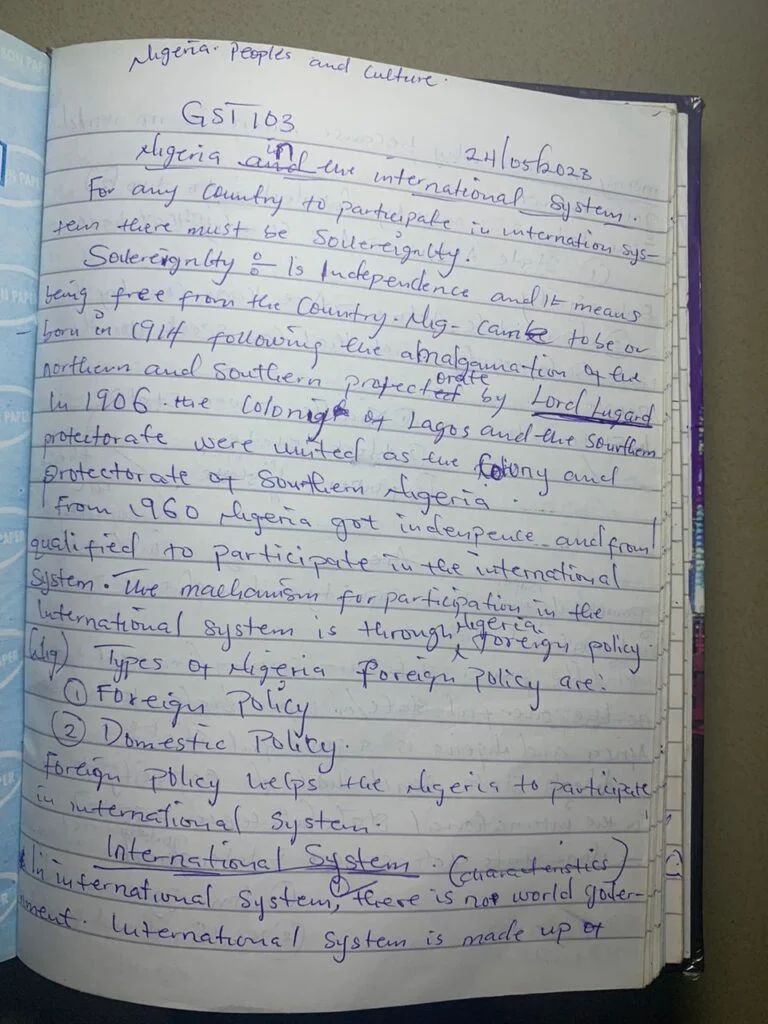 Nigeria. Peoples and Culture.
GST 103
24/05/2023
Nigeria in the international System.
For any Country to participate in internation sys-
tem there must be Sovereignty.
Sovereignty :- is Independence and It means
being free from the Country. Nig- can be to be or
born in 1914 following the amalgamation of the
northern and Southern protectorate by Lord Lugard
In 1906 the Colony of Lagos and the Southern
protectorate were united as the Colony and
protectorate of Southern Nigeria.
From 1960 Nigeria got indenpence and from
qualified to participate in the international
System. The mechanism for participation in the
International System is through Nigeria foreign policy.
(Nig) Types of Nigeria foreign policy are:
① Foreign Policy
② Domestic Policy.
Foreign policy helps the Nigeria to participate
in international System.
International System (Characteristics)
In international System, there is no world gover-
nment. International System is made up of